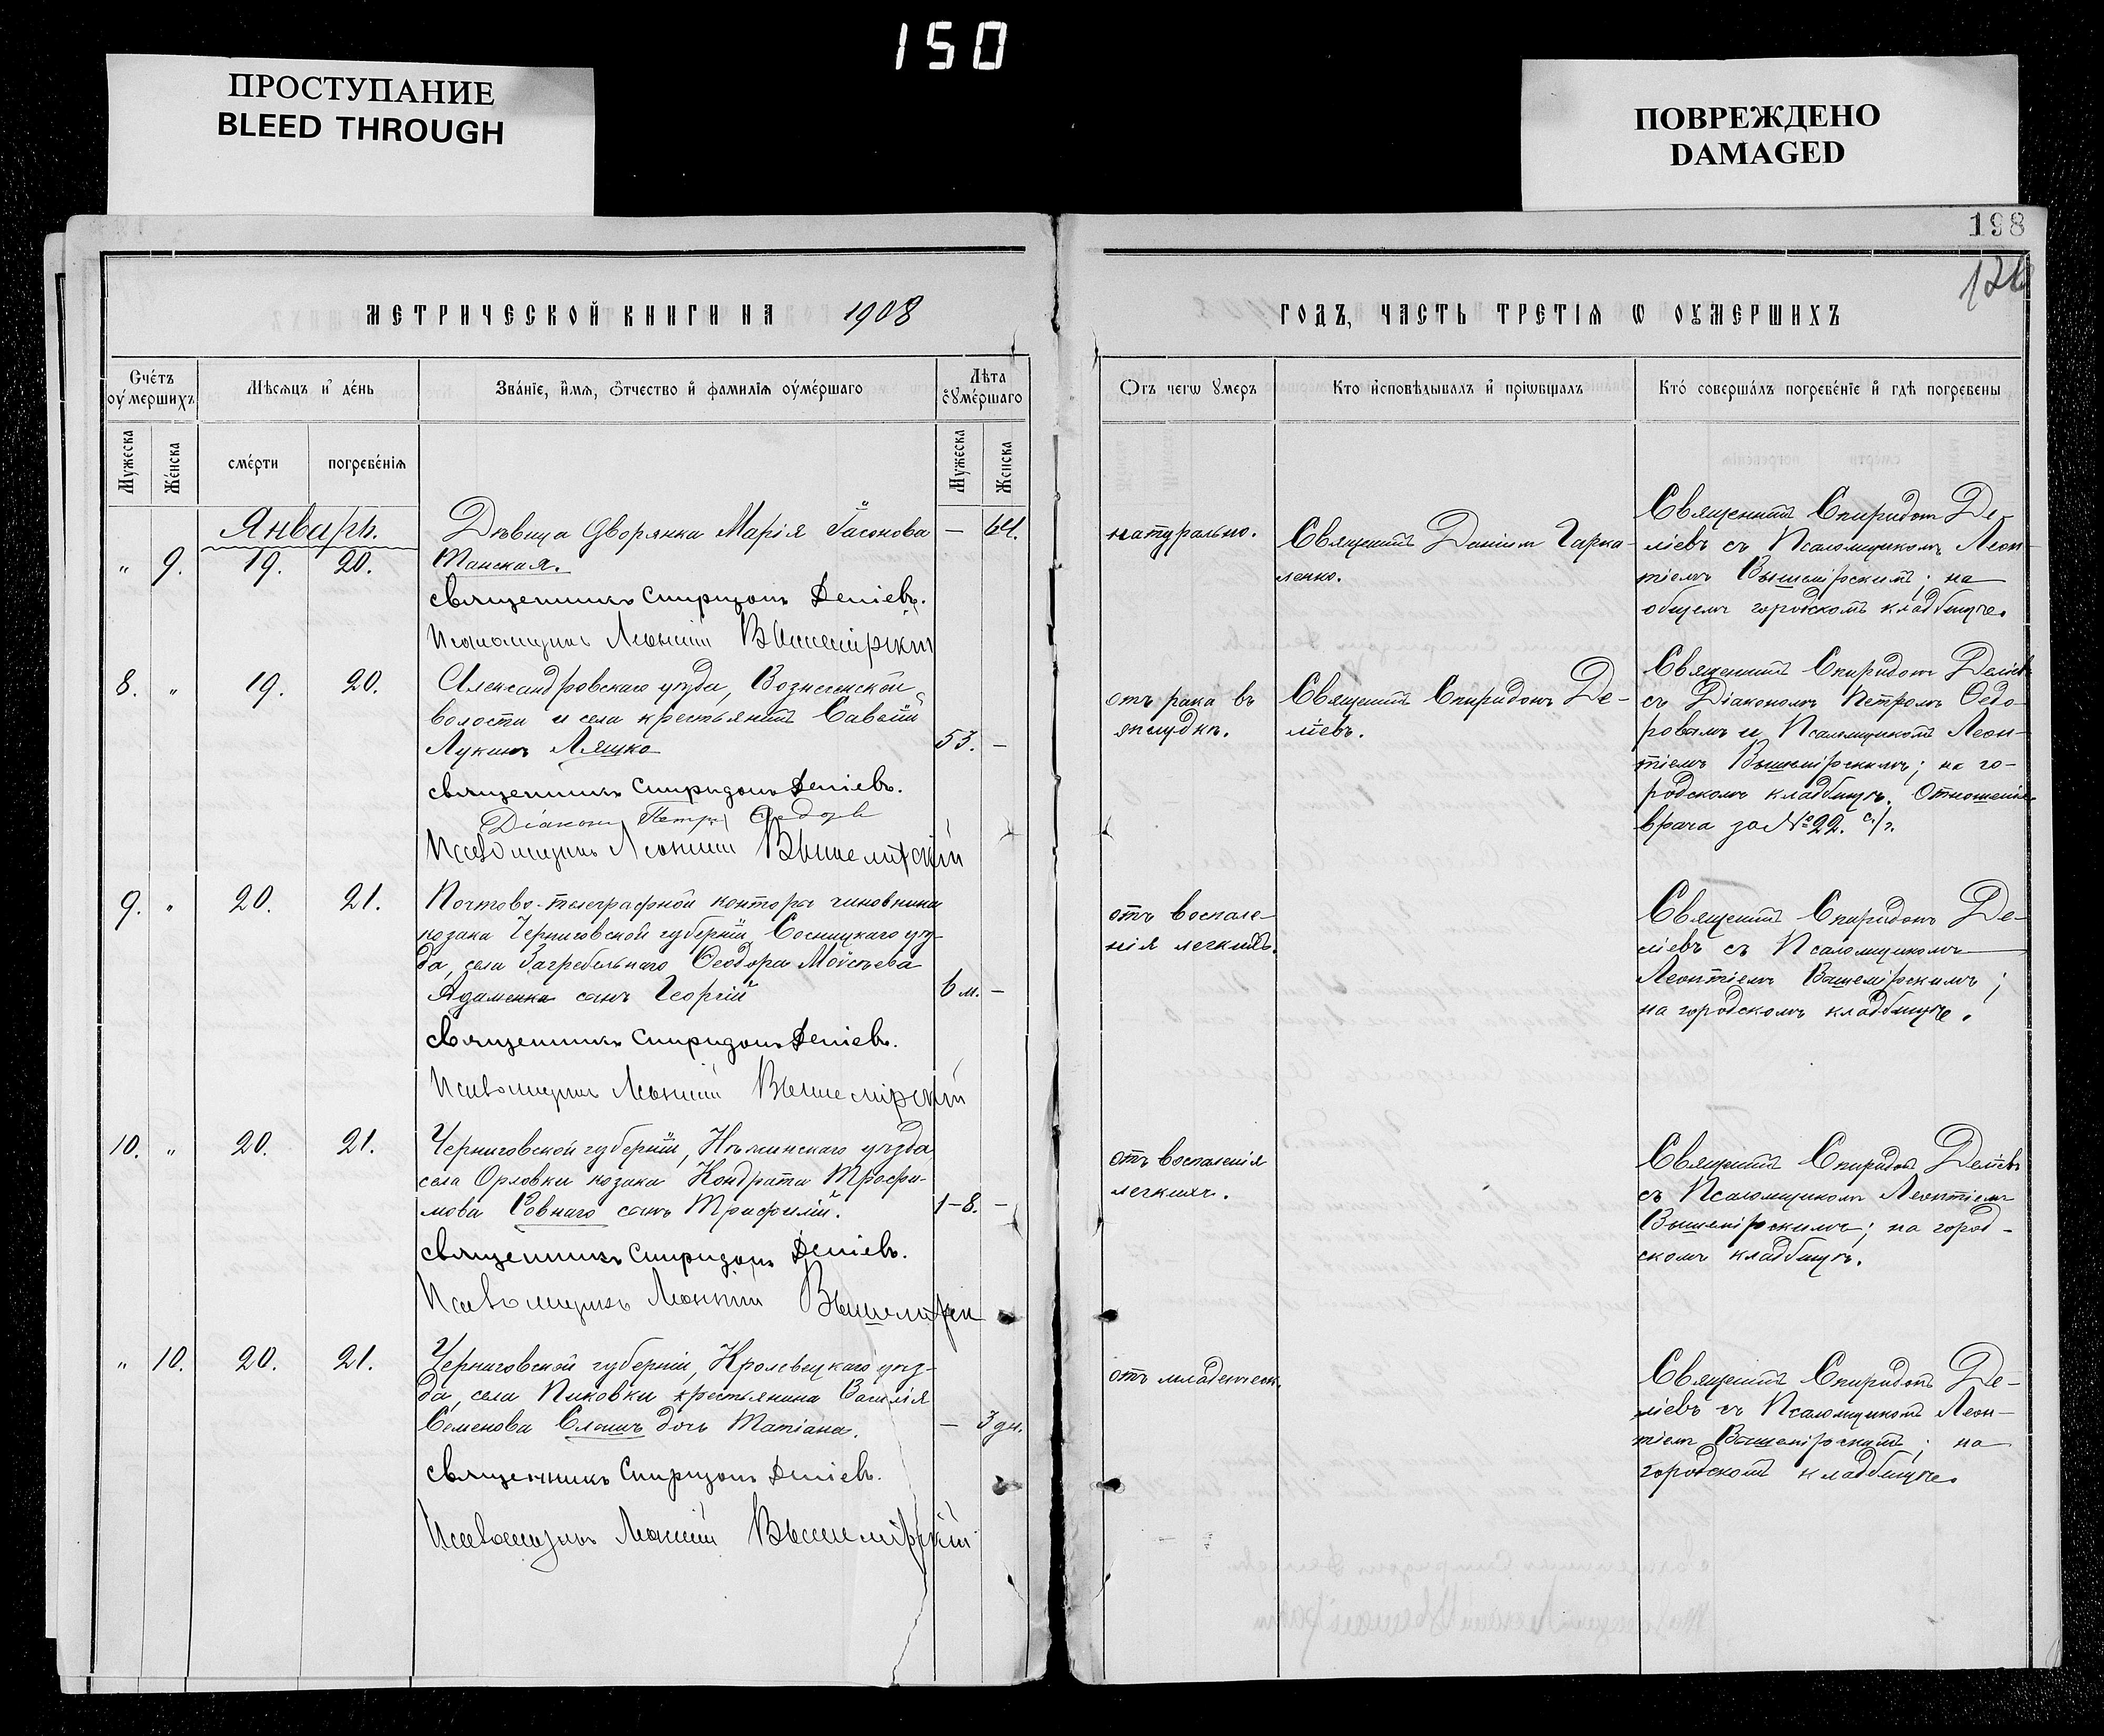 150
ПРОСТУПАНИЕ
BLEED THROUGH
ПОВРЕЖДЕНО
DAMAGED
198
МЕТРИЧЕСКОЙ КНИГИ НА 1908
ГОДЪ, ЧАСТЬ ТРЕТІѦ Ѡ ОУМЕРШИХЪ
Счéтъ оу́мершихъ
Мѣсѧцъ и҆ дéнь
Звáнїе, и҆́мѧ, ѻ҆́тчество и҆ фамилїѧ оумéршаго
Лѣта оумéршаго
Отъ чегѡ умеръ
Кто и҆сповѣдывалъ и҆ прїѡбщалъ
Кто́ совершáлъ погребéнїе и҆ гдѣ погребены
Мужеска
Жéнска
смéрти
погребéнїѧ
Мужеска
Женска
Январь.
„ 9. 19. 20.
Дѣвица дворянка Марія Іасонова — 64.
Танская.
священникъ Спиридонъ Деліевъ.
Псаломщикъ Леонтій Вышемірскій
натурально.
Священникъ Даніилъ Гарка-
ленко.
Священникъ Спиридонъ Де-
ліевъ съ Псаломщикомъ Леон-
тіемъ Вышемірскимъ; на
общемъ городскомъ кладбищѣ.
8. „ 19. 20.
Александровскаго уѣзда, Вознесенской
волости и села крестьянинъ Саватій
Лукинъ Ляшко 53. —
священникъ Спиридонъ Деліевъ.
Діаконъ Петръ Федоровъ
Псаломщикъ Леонтій Вышемірскій
отъ рака въ
желудкѣ.
Священникъ Спиридонъ Де-
ліевъ.
Священникъ Спиридонъ Деліевъ
съ Діакономъ Петромъ Ѳедо-
ровымъ и Псаломщикомъ Леон-
тіемъ Вышемірскимъ; на го-
родскомъ кладбищѣ. Отношеніе
врача за № 22. с/г.
9. „ 20. 21.
Почтово-телеграфной конторы чиновника
козака Черниговской губерніи, Сосницкаго уѣз-
да, села Загребельнаго Ѳеодора Моисѣева
Адаменка сынъ Георгій 6 м. —
священникъ Спиридонъ Деліевъ.
Псаломщикъ Леонтій Вышемірскій
отъ воспале-
нія легкихъ.
Священникъ Спиридонъ Де-
ліевъ съ Псаломщикомъ
Леонтіемъ Вышемірскимъ;
на городскомъ кладбищѣ.
10. „ 20. 21.
Черниговской губерніи, Нѣжинскаго уѣзда
села Орловки козака Кондрата Трофи-
мова Ровнаго сынъ Трифилій. 1-8. —
священникъ Спиридонъ Деліевъ.
Псаломщикъ Леонтій Вышемірскій
отъ воспаленія
легкихъ.
Священникъ Спиридонъ Деліевъ
съ Псаломщикомъ Леонтіемъ
Вышемірскимъ; на город-
скомъ кладбищѣ.
„ 10. 20. 21.
Черниговской губерніи, Кролевецкаго уѣз-
да, села крестьянина Василія
Семенова дочь Татіана. — 3 дн.
священникъ Спиридонъ Деліевъ.
Псаломщикъ Леонтій Вышемірскій
отъ младенческ.
Священникъ Спиридонъ Де-
ліевъ съ Псаломщикомъ Леон-
тіемъ Вышемірскимъ; на
городскомъ кладбищѣ.